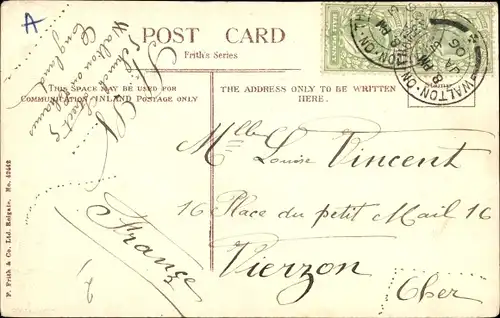 A
POST CARD
Frith's Series.
THIS SPACE MAY BE USED FOR
COMMUNICATION INLAND POSTAGE ONLY
THE ADDRESS ONLY TO BE WRITTEN
HERE.
Church St
Walton on
England
Mlle Louise Vincent
16 Place du petit Mail 16
Vierzon
Cher
France
WALTON-ON-
F. Frith & Co. Ltd. Reigate. No.